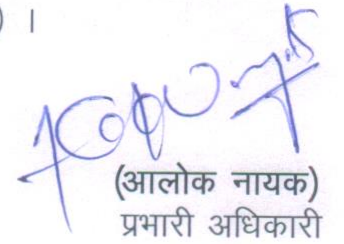 ) ।
(आलोक नायक)
प्रभारी अधिकारी